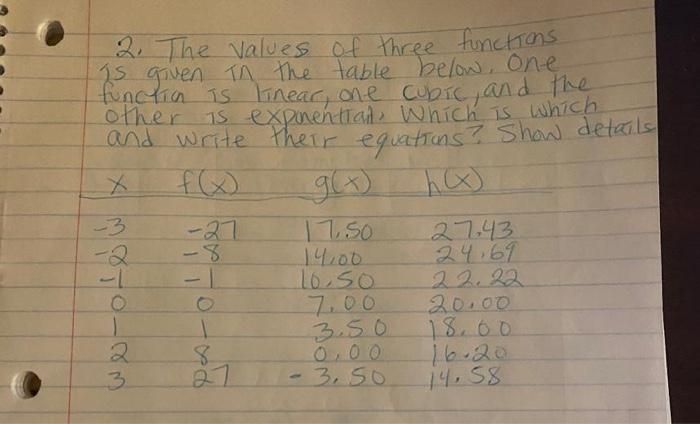 2. The values of three functions
is given in the table below. One
function is linear, one cubic, and the
other is exponential. Which is which
and write their equations? Show details
x f(x) g(x) h(x)
-3 -27 17.50 27.43
-2 -8 14.00 24.69
-1 -1 10.50 22.22
0 0 7.00 20.00
1 1 3.50 18.00
2 8 0.00 16.20
3 27 -3.50 14.58